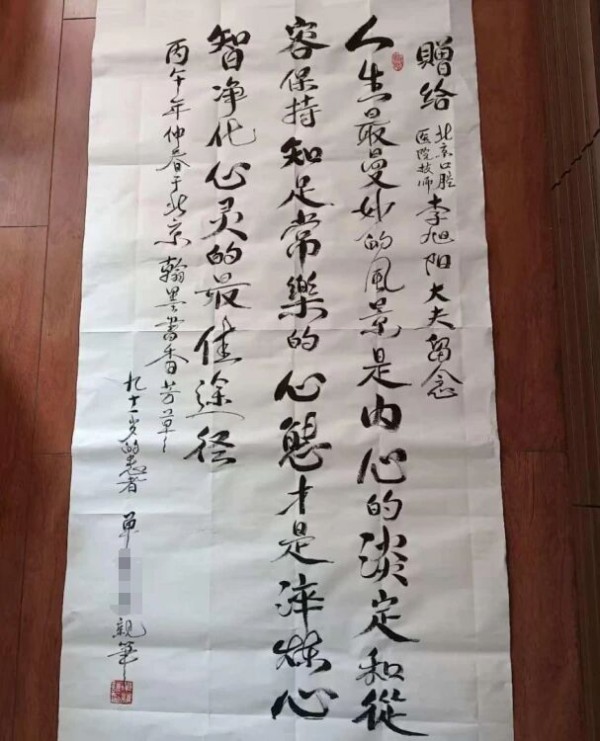 贈给北京口腔医院技师李旭阳大夫留念
人生最曼妙的风景是内心的淡定和從
容保持知足常樂的心態才是淬煉心
智净化心灵的最佳途径
丙午年仲春于北京翰墨書香芳草
九十一岁的患者 单
親筆